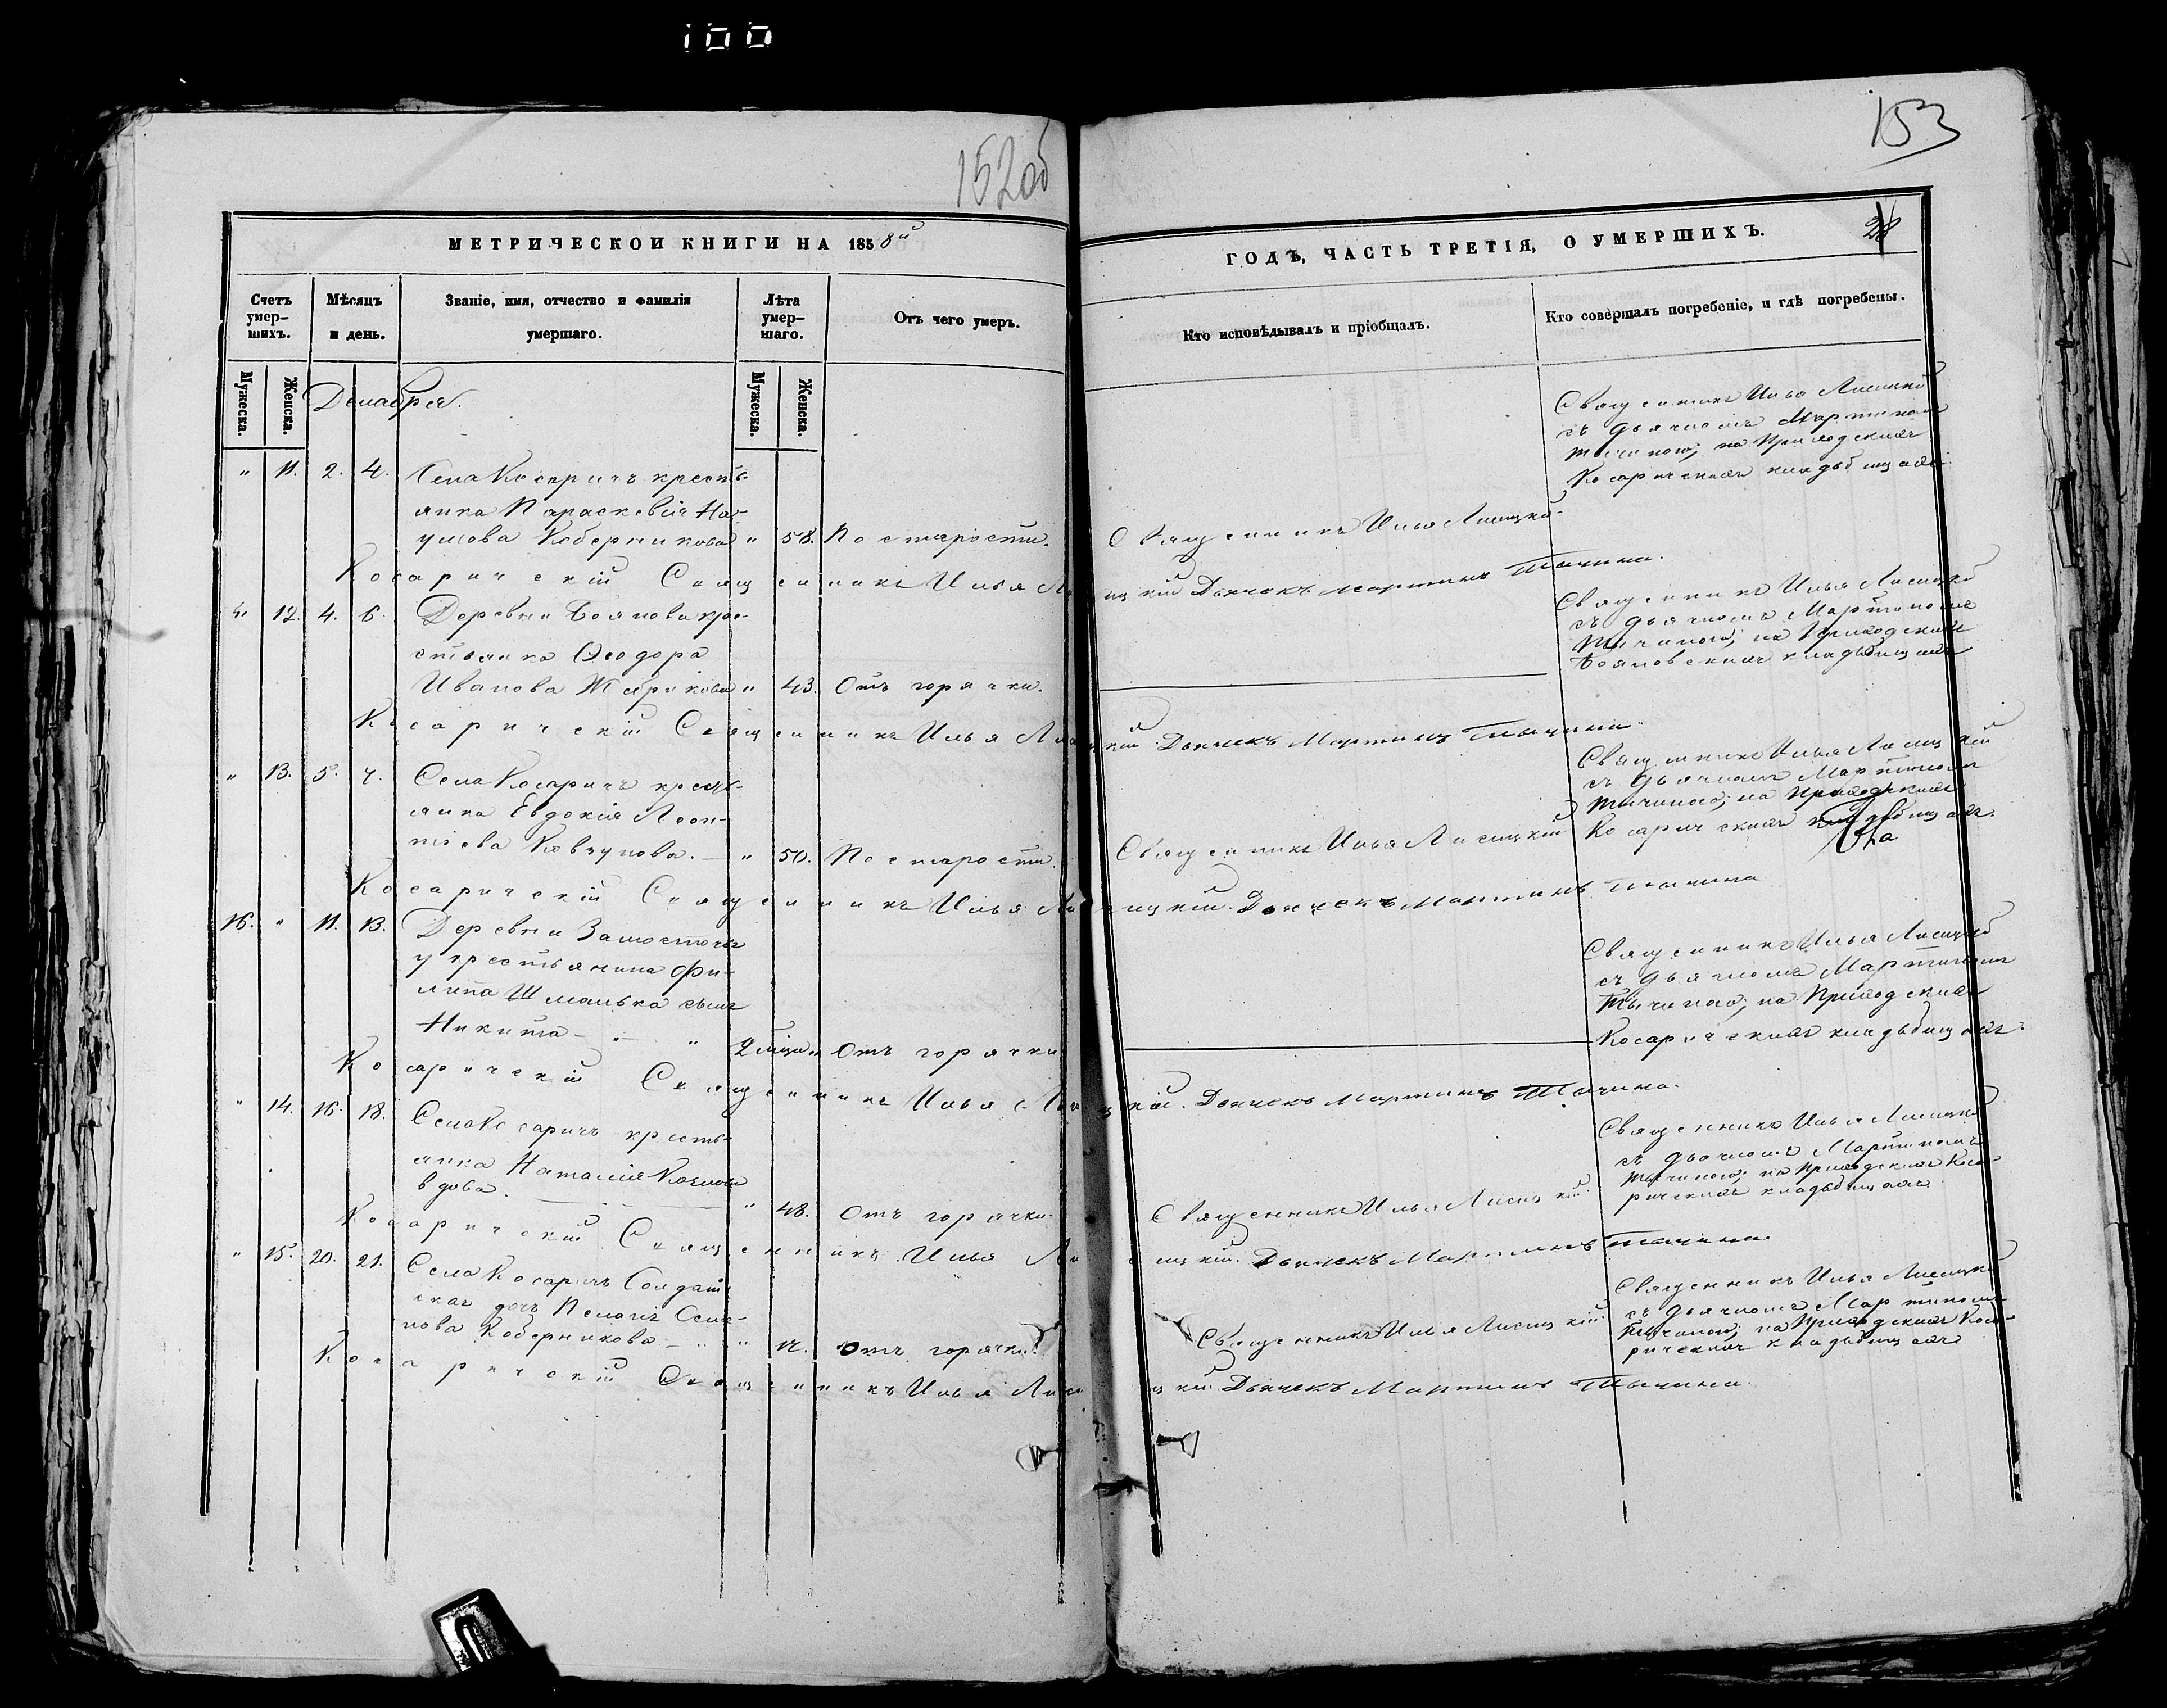 100
152 об
153
МЕТРИЧЕСКОЙ КНИГИ НА 1858й
ГОДЪ, ЧАСТЬ ТРЕТІЯ, О УМЕРШИХЪ.
28
Счетъ умер-шихъ.
Мѣсяцъ и день.
Званіе, имя, отчество и фамилія умершаго.
Лѣта умер-шаго.
Отъ чего умеръ.
Кто исповѣдывалъ и пріобщалъ.
Кто совершалъ погребеніе, и гдѣ погребены.
Мужеска.
Женска.
Мужеска.
Женска.
Декабря.
" 11. 2. 4. Села Косаричъ кресть-
янка Параскевія На-
умова Коберникова " 58. По старости.
Священникъ Илья Лисицкій
Священникъ Илья Лисицкій
съ дьячкомъ Мартиномъ
Тычиною, на Приходскихъ
Косаричскихъ кладбищахъ
Косаричскій Священникъ Илья Лисицкій Дьячекъ Мартинъ Тычина.
" 12. 4. 6. Деревни Бояновы кре-
стьянка Феодора
Иванова Жарикова " 43. Отъ горячки.
Священникъ Илья Лисицкій
съ дьячкомъ Мартиномъ
Тычиною, на Приходскихъ
Бояновскихъ кладбищахъ
Косаричскій Священникъ Илья Лисицкій Дьячекъ Мартинъ Тычина.
" 13. 5. 7. Села Косаричъ кресть-
янка Евдокія Леон-
тіева Ковзунова. " 50. По старости.
Священникъ Илья Лисицкій
Священникъ Илья Лисицкій
съ дьячкомъ Мартиномъ
Тычиною, на Приходскихъ
Косаричскихъ кладбищахъ.
Косаричскій Священникъ Илья Лисицкій. Дьячекъ Мартинъ Тычина
16. " 11. 13. Деревни Замосточья
у крестьянина Фи-
липа Шманька сынъ
Никита " Отъ горячки
Священникъ Илья Лисицкій
съ дьячкомъ Мартиномъ
Тычиною, на Приходскихъ
Косаричскихъ кладбищахъ.
Косаричскій Священникъ Илья Лисицкій. Дьячекъ Мартинъ Тычина.
" 14. 16. 18. Села Косаричъ кресть-
янка Наталія
вдова. " 48. Отъ горячки
Священникъ Илья Лисицкій
Священникъ Илья Лисицкій
съ дьячкомъ Мартиномъ
Тычиною, на Приходскихъ Коса-
ричскихъ кладбищахъ
Косаричскій Священникъ Илья Лисицкій. Дьячекъ Мартинъ Тычина.
" 15. 20. 21. Села Косаричъ Солдат-
ская дочь Семе-
нова Коберникова " Отъ горячки.
Священникъ Илья Лисицкій
Священникъ Илья Лисицкій
съ дьячкомъ Мартиномъ
Тычиною, на Приходскихъ Коса-
ричскихъ кладбищахъ
Косаричскій Священникъ Илья Лисицкій. Дьячекъ Мартинъ Тычина.